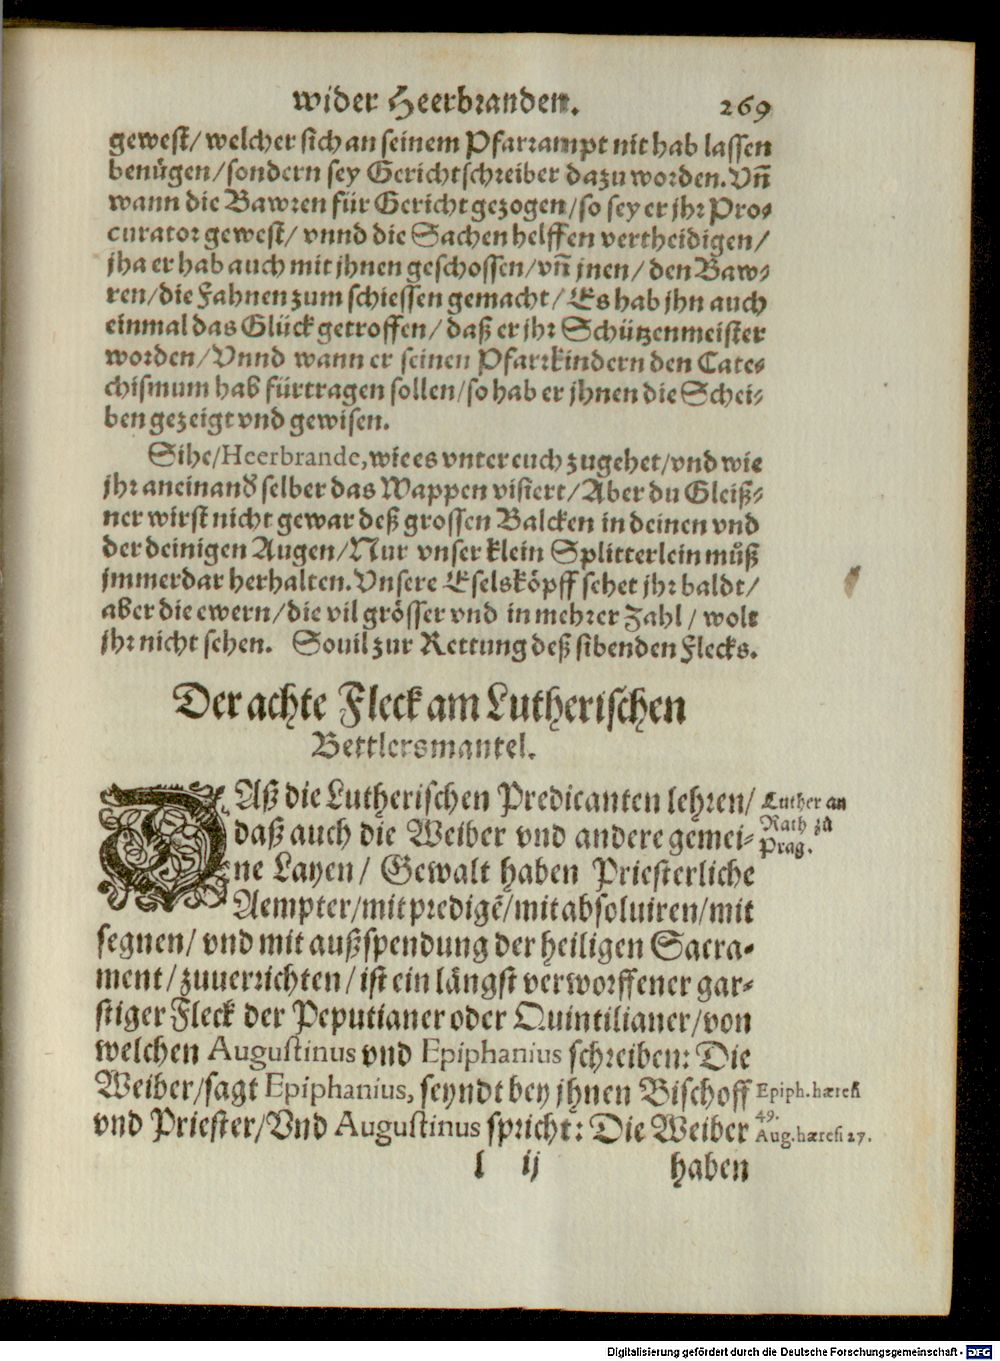 wider Heerbranden. 269
gewest/ welcher sich an seinem Pfarrampt nit hab lassen
benügen/ sondern sey Gerichtschreiber dazu worden. Vñ
wann die Bawren für Gericht gezogen/ so sey er jhr Pro-
curator gewest/ vnnd die Sachen helffen vertheidigen/
jha er hab auch mit jhnen geschossen/ vñ jnen/ den Baw-
ren/ die Fahnen zum schiessen gemacht/ Es hab jhn auch
einmal das Glück getroffen/ daß er jhr Schützenmeister
worden/ Vnnd wann er seinen Pfarrkindern den Cate-
chismum hab fürtragen sollen/ so hab er jhnen die Schei-
ben gezeigt vnd gewisen.
Sihe/ Heerbrande, wie es vnter euch zugehet/ vnd wie
jhr aneinand selber das Wappen visiert/ Aber du Gleiß-
ner wirst nicht gewar deß grossen Balcken in deinen vnd
der deinigen Augen/ Nur vnser klein Splitterlein můß
jmmerdar herhalten. Vnsere Eselsköpff sehet jhr baldt/
aber die ewern/ die vil grösser vnd in mehrer Zahl/ wolt
jhr nicht sehen. Souil zur Rettung deß sibenden Flecks.
Der achte Fleck am Lutherischen
Bettlersmantel.
DAß die Lutherischen Predicanten lehren/
daß auch die Weiber vnd andere gemei-
ne Layen/ Gewalt haben Priesterliche
Aempter/ mit predigẽ/ mit absoluiren/ mit
segnen/ vnd mit außspendung der heiligen Sacra-
ment/ zuuerrichten/ ist ein längst verworffener gar-
stiger Fleck der Peputianer oder Quintilianer/ von
welchen Augustinus vnd Epiphanius schreiben: Die
Weiber/ sagt Epiphanius, seyndt bey jhnen Bischoff
vnd Priester/ Vnd Augustinus spricht: Die Weiber
Luther an
Rath zů
Prag.
Epiph. hæresi
49.
Aug. hæresi 27.
l ij haben
Digitalisierung gefördert durch die Deutsche Forschungsgemeinschaft - DFG